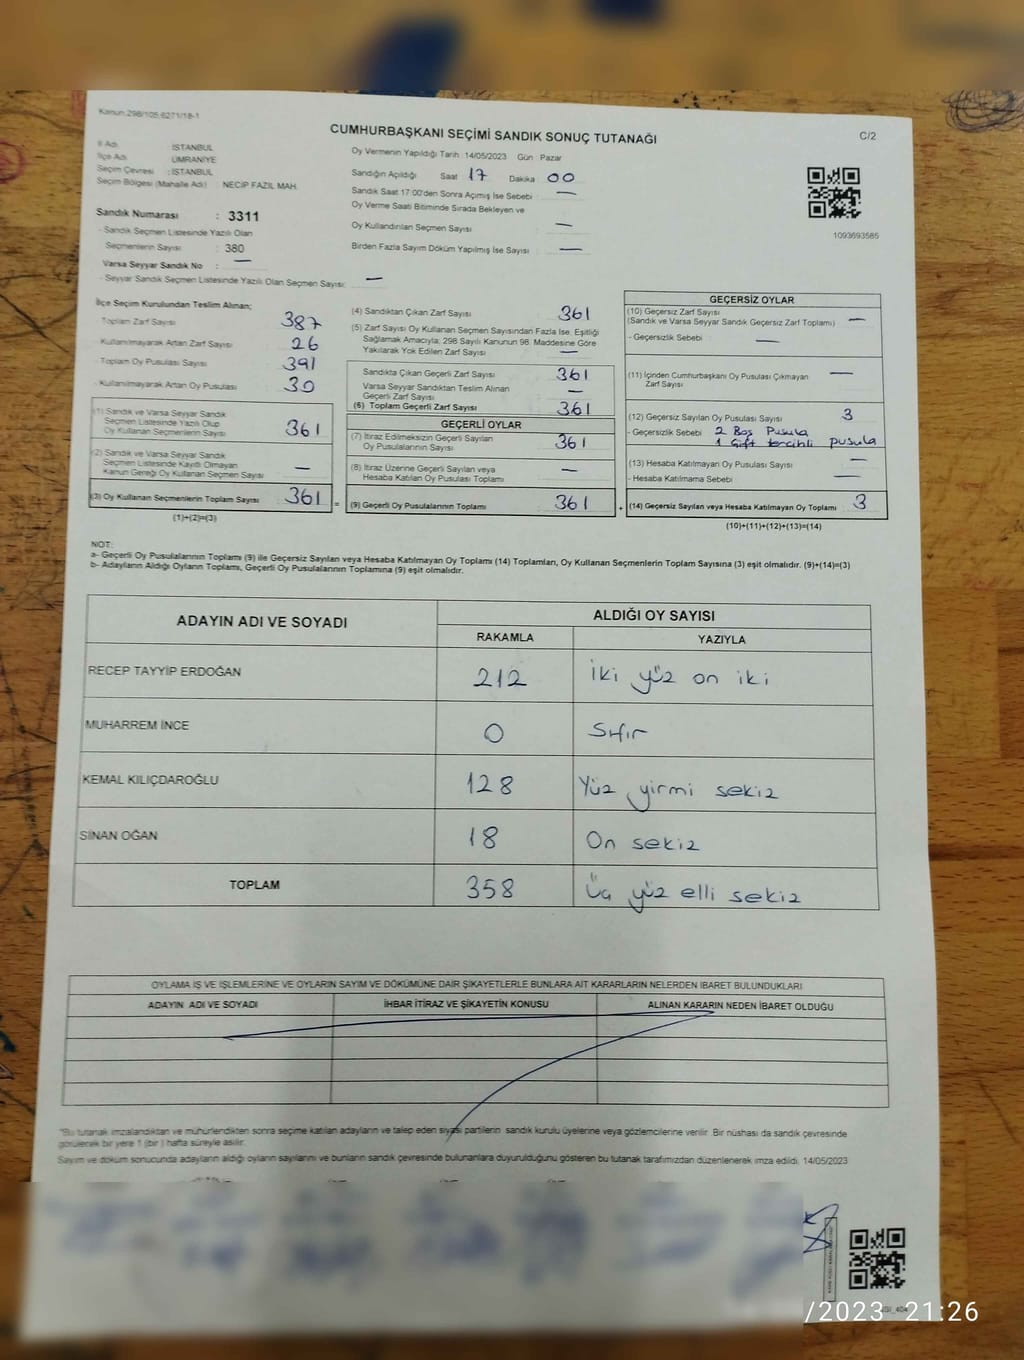 Kanun.298/105,6271/18-1
CUMHURBAŞKANI SEÇİMİ SANDIK SONUÇ TUTANAĞI
C/2
İl Adı İSTANBUL
İlçe Adı ÜMRANİYE
Seçim Çevresi : İSTANBUL
Seçim Bölgesi (Mahalle Adı) NECİP FAZIL MAH.
Sandık Numarası : 3311
- Sandık Seçmen Listesinde Yazılı Olan
Seçmenlerin Sayısı : 380
Varsa Seyyar Sandık No : —
- Seyyar Sandık Seçmen Listesinde Yazılı Olan Seçmen Sayısı: —
Oy Vermenin Yapıldığı Tarih 14/05/2023 Gün Pazar
Sandığın Açıldığı Saat 17 Dakika 00
Sandık Saat 17:00'den Sonra Açımış İse Sebebi —
Oy Verme Saati Bitiminde Sırada Bekleyen ve
Oy Kullandırılan Seçmen Sayısı —
Birden Fazla Sayım Döküm Yapılmış İse Sayısı —
1093693585
İlçe Seçim Kurulundan Teslim Alınan;
Toplam Zarf Sayısı 387
Kullanılmayarak Artan Zarf Sayısı 26
Toplam Oy Pusulası Sayısı 391
Kullanılmayarak Artan Oy Pusulası 30
(1) Sandık ve Varsa Seyyar Sandık
Seçmen Listesinde Yazılı Olup
Oy Kullanan Seçmenlerin Sayısı 361
(2) Sandık ve Varsa Seyyar Sandık
Seçmen Listesinde Kayıtlı Olmayan
Kanun Gereği Oy Kullanan Seçmen Sayısı —
(3) Oy Kullanan Seçmenlerin Toplam Sayısı 361 =
(1)+(2)=(3)
(4) Sandıktan Çıkan Zarf Sayısı 361
(5) Zarf Sayısı Oy Kullanan Seçmen Sayısından Fazla İse, Eşitliği
Sağlamak Amacıyla; 298 Sayılı Kanunun 98. Maddesine Göre
Yakılarak Yok Edilen Zarf Sayısı —
Sandıkta Çıkan Geçerli Zarf Sayısı 361
Varsa Seyyar Sandıktan Teslim Alınan
Geçerli Zarf Sayısı —
(6) Toplam Geçerli Zarf Sayısı 361
GEÇERLİ OYLAR
(7) İtiraz Edilmeksizin Geçerli Sayılan
Oy Pusulalarının Sayısı 361
(8) İtiraz Üzerine Geçerli Sayılan veya
Hesaba Katılan Oy Pusulası Toplamı —
(9) Geçerli Oy Pusulalarının Toplamı 361 +
GEÇERSİZ OYLAR
(10) Geçersiz Zarf Sayısı
(Sandık ve Varsa Seyyar Sandık Geçersiz Zarf Toplamı) —
- Geçersizlik Sebebi —
(11) İçinden Cumhurbaşkanı Oy Pusulası Çıkmayan
Zarf Sayısı —
(12) Geçersiz Sayılan Oy Pusulası Sayısı 3
- Geçersizlik Sebebi 2 Boş Pusula
1 Çift tercihli pusula
(13) Hesaba Katılmayan Oy Pusulası Sayısı —
- Hesaba Katılmama Sebebi —
(14) Geçersiz Sayılan veya Hesaba Katılmayan Oy Toplamı 3
(10)+(11)+(12)+(13)=(14)
NOT:
a- Geçerli Oy Pusulalarının Toplamı (9) ile Geçersiz Sayılan veya Hesaba Katılmayan Oy Toplamı (14) Toplamları, Oy Kullanan Seçmenlerin Toplam Sayısına (3) eşit olmalıdır. (9)+(14)=(3)
b- Adayların Aldığı Oyların Toplamı, Geçerli Oy Pusulalarının Toplamına (9) eşit olmalıdır.
ADAYIN ADI VE SOYADI ALDIĞI OY SAYISI
RAKAMLA YAZIYLA
RECEP TAYYİP ERDOĞAN 212 İki yüz on iki
MUHARREM İNCE 0 Sıfır
KEMAL KILIÇDAROĞLU 128 Yüz yirmi sekiz
SİNAN OĞAN 18 On sekiz
TOPLAM 358 Üç yüz elli sekiz
OYLAMA İŞ VE İŞLEMLERİNE VE OYLARIN SAYIM VE DÖKÜMÜNE DAİR ŞİKAYETLERLE BUNLARA AİT KARARLARIN NELERDEN İBARET BULUNDUKLARI
ADAYIN ADI VE SOYADI İHBAR İTİRAZ VE ŞİKAYETİN KONUSU ALINAN KARARIN NEDEN İBARET OLDUĞU
"Bu tutanak imzalandıktan ve mühürlendikten sonra seçime katılan adayların ve talep eden siyasi partilerin sandık kurulu üyelerine veya gözlemcilerine verilir. Bir nüshası da sandık çevresinde
görülecek bir yere 1 (bir ) hafta süreyle asılır.
Sayım ve döküm sonucunda adayların aldığı oyların sayılarını ve bunların sandık çevresinde bulunanlara duyurulduğunu gösteren bu tutanak tarafımızdan düzenlenerek imza edildi. 14/05/2023
/2023 21:26